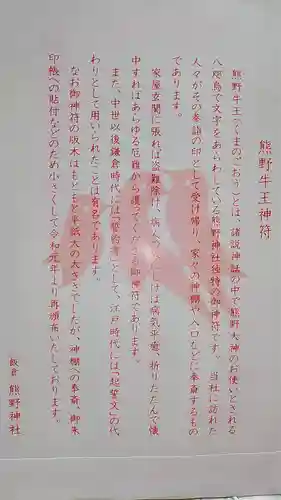 熊野牛王神符
熊野牛王(くまのごおう)とは、諸説神話の中で熊野大神のお使いとされる
八咫烏で文字をあらわしている熊野神社独特の御神符です。 当社に訪れた
人々がその参詣の印として受け帰り、家々の神棚や入口などに奉斎するもの
であります。
家屋玄関に張れば盗難除け、病人の床にしけば病気平癒、折りたたんで懐
中すればあらゆる厄難から護ってくださる御神符であります。
また、中世以後鎌倉時代には「誓約書」として、江戸時代には「起誓文」の代
わりとして用いられたことは有名であります。
なお御神符の版木はもともと半紙大の大きさでしたが、神棚への奉斎、御朱
印帳への貼付などのため小さくして令和元年より再頒布いたしております。
飯倉 熊野神社